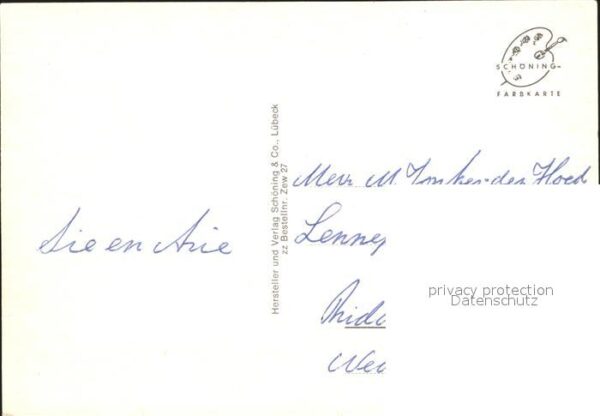 SCHÖNING-
FARBKARTE
Hersteller und Verlag Schöning & Co., Lübeck
zz Bestellnr. Zew 27
Sie en Arie
Mevr M. den Hoed
Lenne
privacy protection
Datenschutz